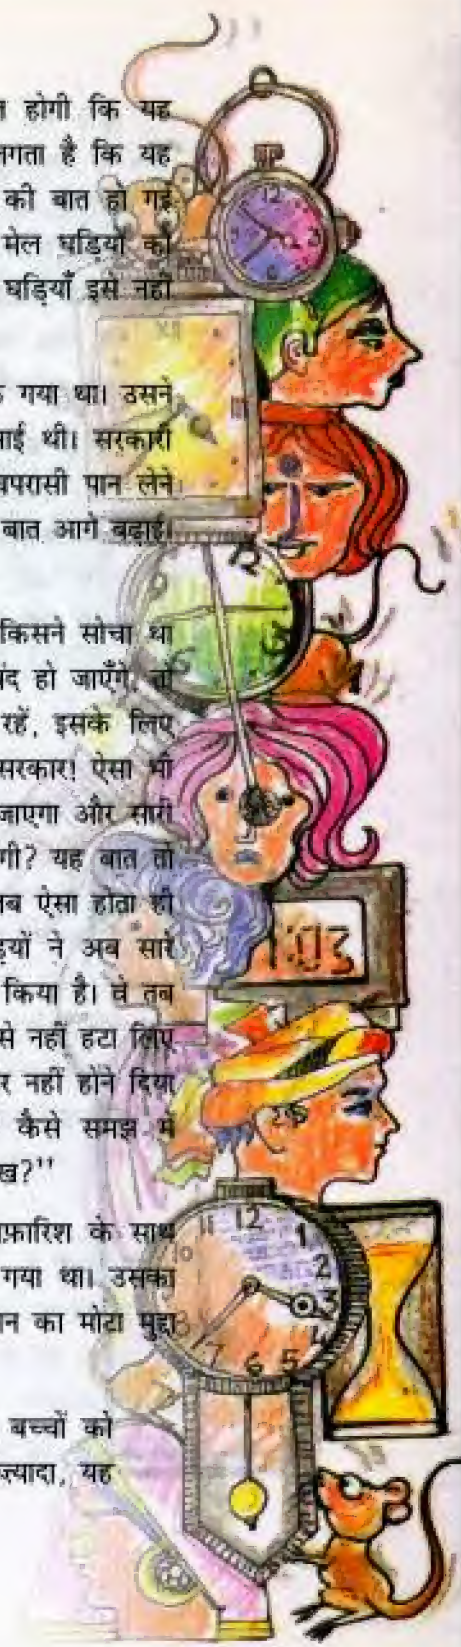 होगी कि यह
लगता है कि यह
की बात हो गई
मेल घड़ियों को
घड़ियाँ इसे नहीं
गया था। उसने
सरकारी
चपरासी पान लेने
बात आगे बढ़ाई।
किसने सोचा था
हो जाएँगे, तो
रहें, इसके लिए
सरकार! ऐसा भी
जाएगा और सारी
यह बात तो
ऐसा होता ही
ने अब सारे
किया है। वे तब
से नहीं हटा लिए
नहीं होने दिया
कैसे समझ में
के साथ
गया था। उसका
का मोटा मुद्दा
बच्चों को
यह
12
3
12
1:03
11 12 1
2
3
4
5
6
7
8